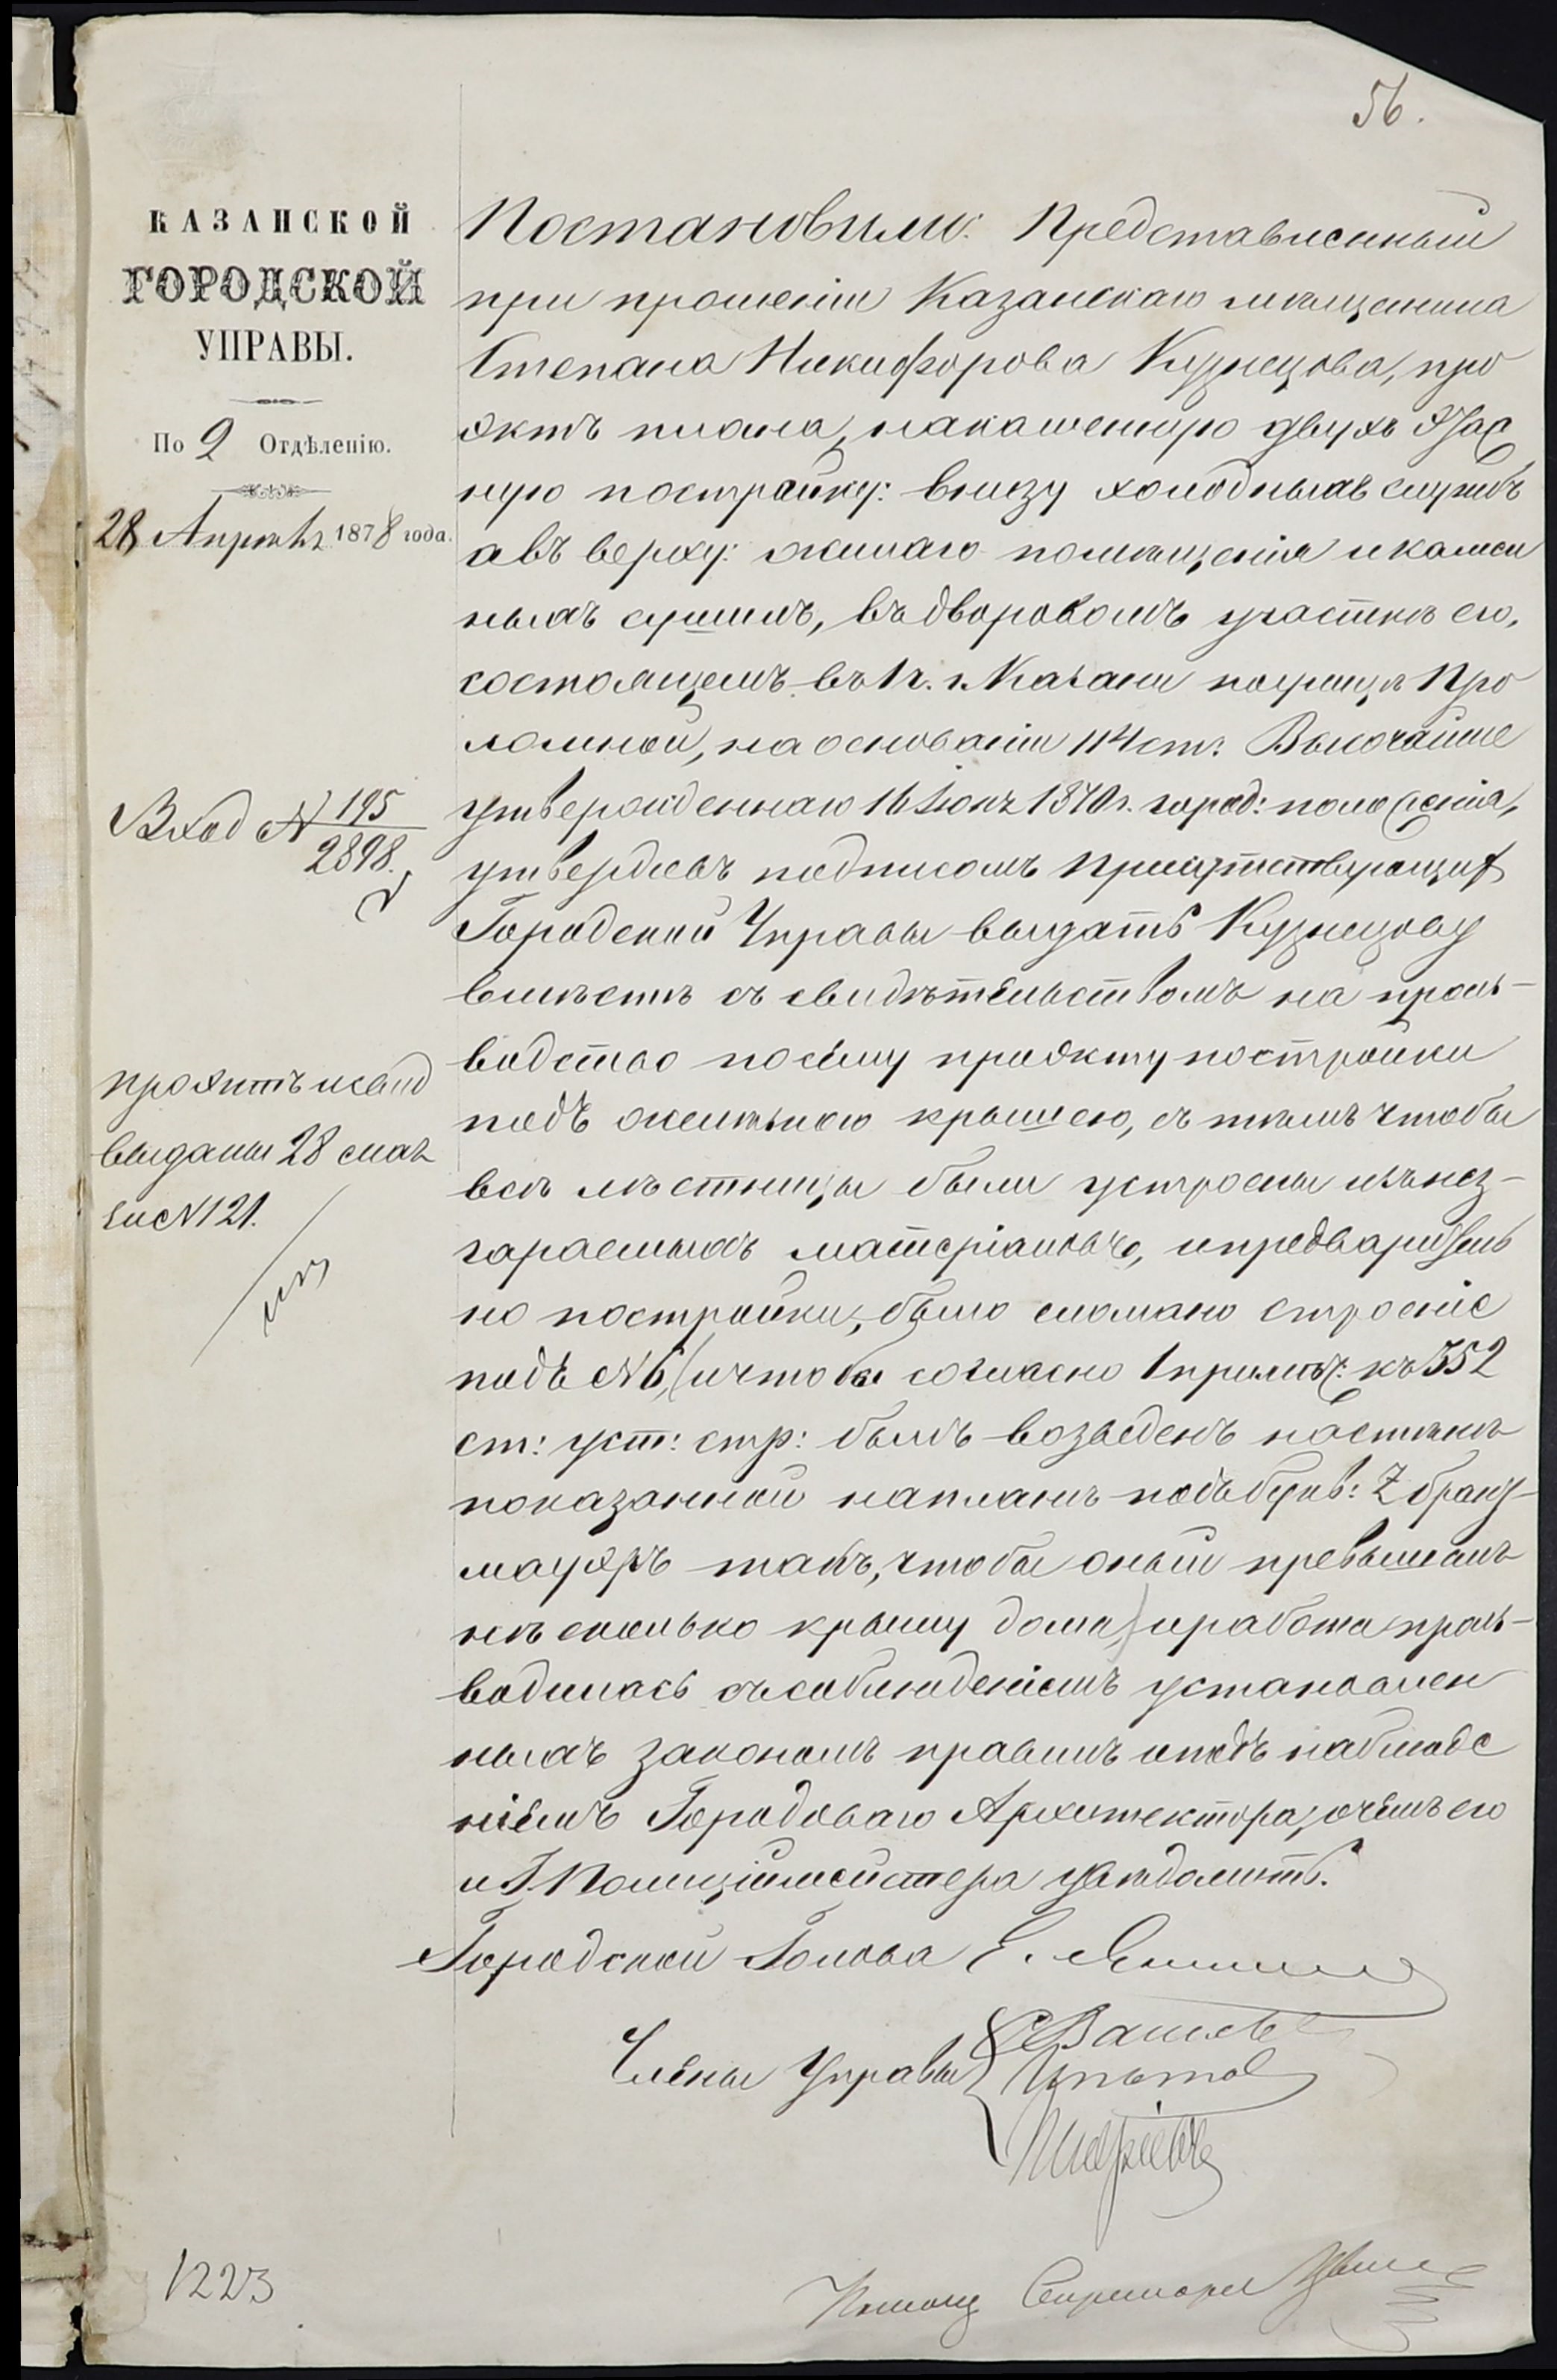 56.
КАЗАНСКОЙ
ГОРОДСКОЙ
УПРАВЫ.
По 2 Отдѣленію.
28 Апрѣля 1878 года.
Вход № 195
2898.
проэктъ исвид
выданы 28 снаг
№ 121.
Постановили: Представленный
при прошеніи Казанскаго мѣщанина
Степана Никифорова Кузнецова, про
эктъ плана, на каменную двухъ этаж
ную постройку: внизу холодныхъ службъ
авъ верху: жилаго помѣщенія и камен
ныхъ службъ, въ дворовомъ участкѣ его,
состоящемъ въ 1 ч. г. Казани по улицѣ Про
ломной, на основаніи 114 ст. Высочайше
утвержденнаго 16 Іюня 1870 г. город: положенія,
утвердивъ подписомъ присутствующих
Городской Управы выдать Кузнецову
вмѣстѣ съ свидѣтельствомъ на произ-
водство по сему проэкту постройки
подъ желѣзною крышею, съ тѣмъ чтобы
всѣ лѣстницы были устроены изъ нез-
гараемыхъ матеріаловъ, и предваритель
но постройки, было сломано строеніе
подъ № 6, (и чтобы согласно 1 примѣч: къ 352
ст: уст: стр: былъ возведенъ на стѣнѣ
показанной на планѣ подъ букв: Z бранд-
мауэръ такъ, чтобы оный превышалъ
нѣсколько крышу дома,) и работа произ-
водилась съ соблюденіемъ установлен
ныхъ закономъ правилъ и подъ наблюде
ніемъ Городоваго Архитектора, о чемъ его
и Г. Полиціймейстера увѣдомить.
Городской Голова Е. Янишев
Члены Управы
Помощ Секретаря
1223